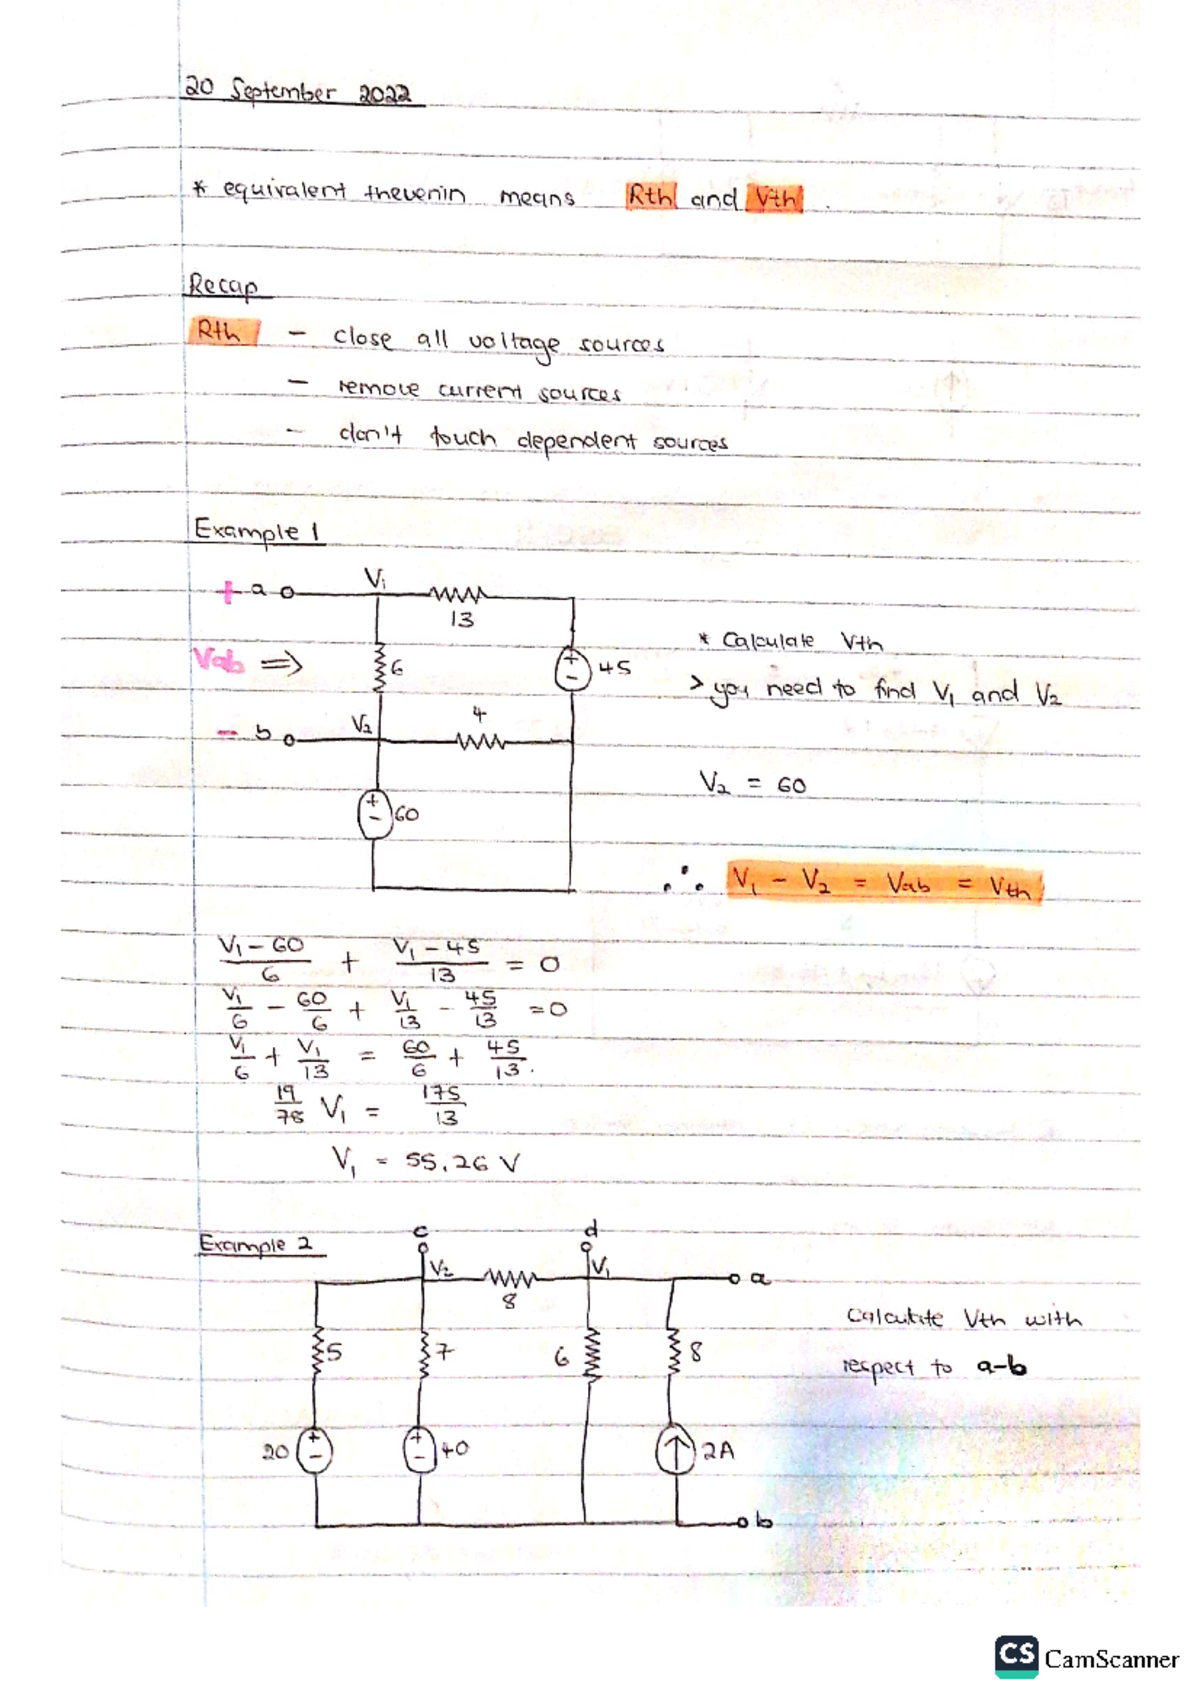 20 September 2022
* equivalent thevenin means Rth and Vth.
Recap
Rth - close all voltage sources
- remove current sources
- don't touch dependent sources
Example 1
+ a V1
13
Vab ⇒ 6 + - 45
* Calculate Vth
> you need to find V1 and V2
- b V2 4
V2 = 60
+ - 60
∴ V1 - V2 = Vab = Vth
V1 - 60 / 6 + V1 - 45 / 13 = 0
V1/6 - 60/6 + V1/13 - 45/13 = 0
V1/6 + V1/13 = 60/6 + 45/13.
19/78 V1 = 175/13
V1 = 55,26 V
Example 2
c d
V2 8 V1 a
5 7 6 8
Calculate Vth with
respect to a-b
20 + - + - 40 2A
b
CS CamScanner